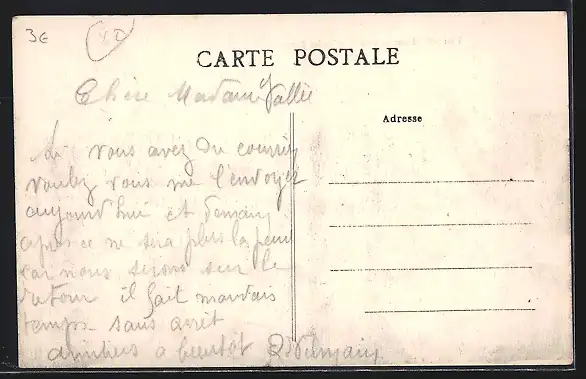 3€
CARTE POSTALE
Chère Madame Vallée
Adresse
Si vous avez du courrier
voulez vous me l'envoyer
aujourd'hui et demain
apres ce ne sera plus la peine
car nous serons sur le
retour il fait mauvais
temps sans arrêt
a bientot